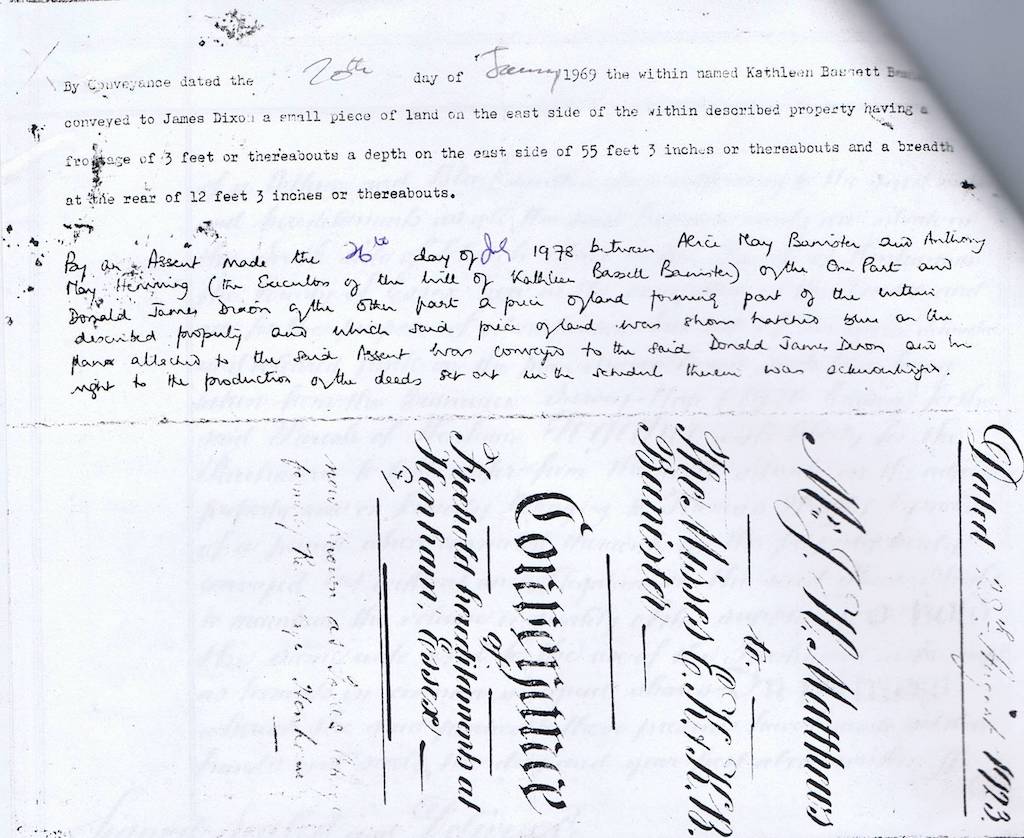 By Conveyance dated the 20th day of January 1969 the within named Kathleen Bassett
conveyed to James Dixon a small piece of land on the east side of the within described property having a
frontage of 3 feet or thereabouts a depth on the east side of 55 feet 3 inches or thereabouts and a breadth
at the rear of 12 feet 3 inches or thereabouts.
By an Assent made the day of 1978 between Alice May Banister and Anthony
May Henning (the Executors of the will of Kathleen Bassett Banister) of the One Part and
Donald James Dixon of the Other part a piece of land forming part of the within
described property and which said piece of land was shown hatched blue on the
plan attached to the said Assent was conveyed to the said Donald James Dixon and the
right to the production of the deeds set out in the schedule therein was acknowledged
Dated 1923.
Mr. S. W. Matthams
to
Mesdames E. M. & K. B.
Banister
Conveyance
of
Freehold hereditaments at
Horsham Essex